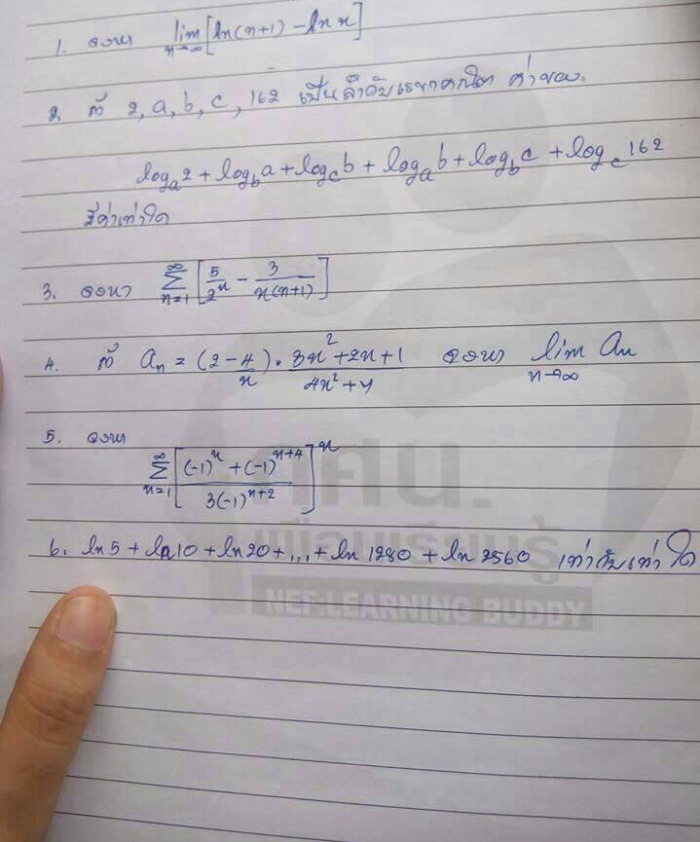 1. จงหา lim n→∞ [ln(n+1) - ln n]
2. ถ้า 2, a, b, c, 162 เป็นลำดับเรขาคณิต ค่าของ
logₐ2 + log_b a + log_c b + logₐb + log_b c + log_c 162
มีค่าเท่าใด
3. จงหา ∞ Σ n=1 [5/2ⁿ - 3/n(n+1)]
4. ถ้า aₙ = (2-4/n) · 3n²+2n+1/4n²+4 จงหา lim n→∞ aₙ
5. จงหา
∞ Σ n=1 [(-1)ⁿ+(-1)ⁿ⁺⁴/3(-1)ⁿ⁺²]ⁿ
6. ln 5 + ln 10 + ln 20 + ... + ln 1280 + ln 2560 เท่ากับเท่าใด
กศน.
เพื่อนเรียนรู้
NEF:LEARNING BUDDY